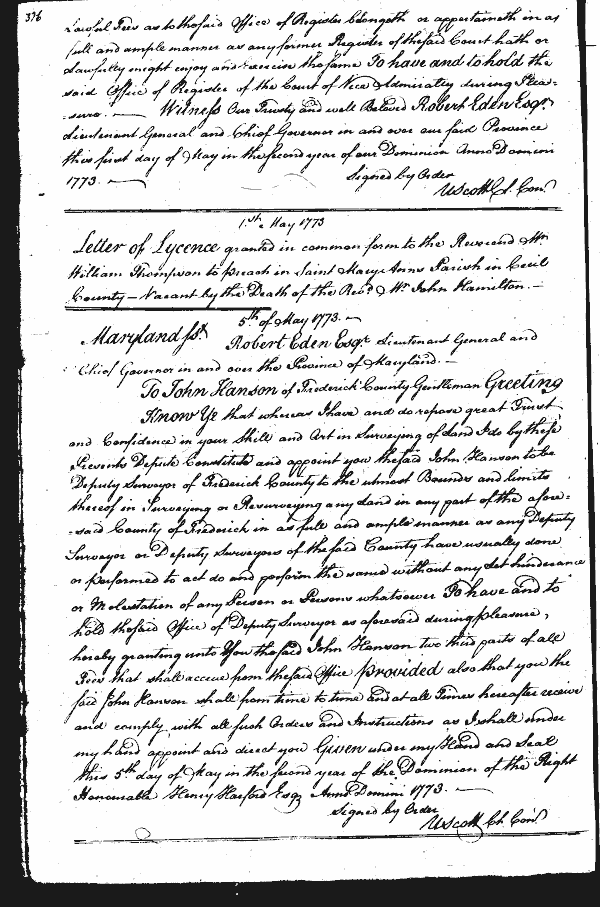 376
Lawful Fees as to the said Office of Register belongeth or appertaineth in as
full and ample manner as any former Register of the said Court hath or
Lawfully might enjoy and exercise the same To have and to hold the
said Office of Register of the Court of Vice Admiralty during Plea=
=sure. — Witness Our Trusty and well Beloved Robert Eden Esqr.
Lieutenant General and Chief Governor in and over our said Province
this first day of May in the second year of our Dominion Anno Domini
1773. —
Signed by Order
U Scott Cl. Con.
1st. May 1773
Letter of Lycence granted in common form to the Reverend Mr.
William Thompson to preach in Saint Mary Anns Parish in Cecil
County — Vacant by the Death of the Revd. Mr. John Hamilton. —
5th of May 1773. —
Maryland Sst.
Robert Eden Esqr. Lieutenant General and
Chief Governor in and over the Province of Maryland. —
To John Hanson of Frederick County Gentleman Greeting
Know Ye that whereas I have and do repose great Trust
and Confidence in your Skill and Art in Surveying of Land I do by these
Presents Depute Constitute and appoint you the said John Hanson to be
Deputy Surveyor of Frederick County to the utmost Bounds and limits
thereof in Surveying or Resurveying any Land in any part of the afore=
=said County of Frederick in as full and ample manner as any Deputy
Surveyor or Deputy Surveyors of the said County have usually done
or performed to act do and perform the same without any Let hinderance
or Molestation of any Person or Persons whatsoever To have and to
hold the said Office of Deputy Surveyor as aforesaid during pleasure,
hereby granting unto You the said John Hanson two third parts of all
Fees that shall accrue from the said Office provided also that you the
said John Hanson shall from time to time and at all Times hereafter receive
and comply with all such Orders and Instructions as I shall under
my hand appoint and direct you Given under my Hand and Seal
this 5th day of May in the second year of the Dominion of the Right
Honourable Henry Harford Esqr Anno Domini 1773. —
Signed by Order
U Scott Cl. Con.